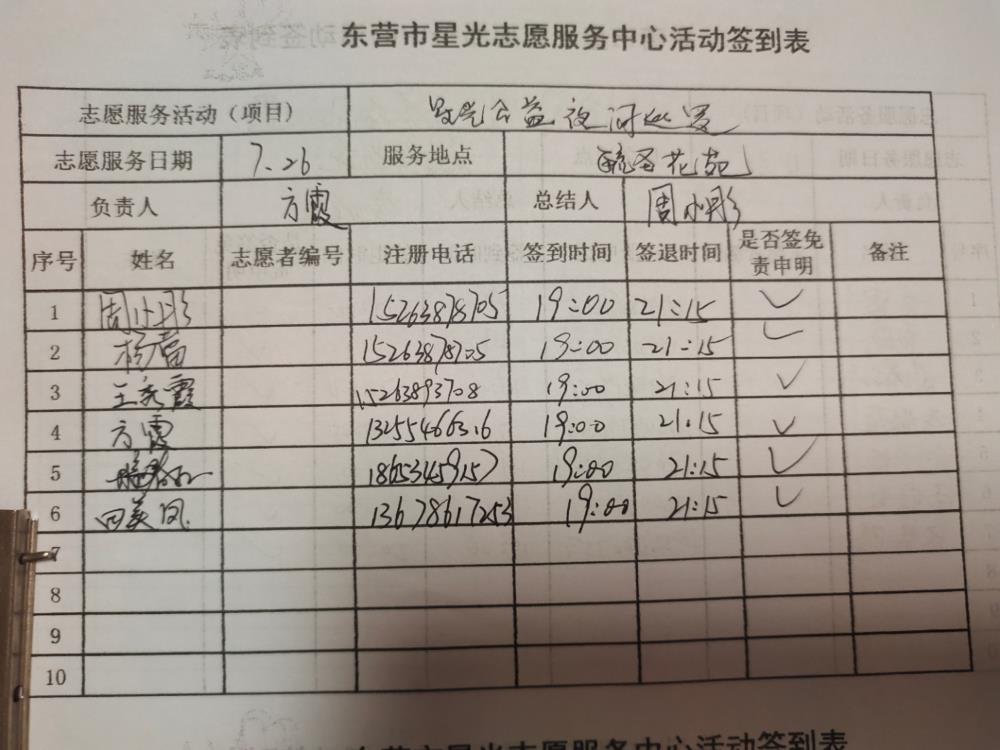 东营市星光志愿服务中心活动签到表
志愿服务活动（项目） 公益夜
志愿服务日期 7.26 服务地点 花苑
负责人 方霞 总结人 周小彤
序号 姓名 志愿者编号 注册电话 签到时间 签退时间 是否签免责申明 备注
1 周小彤 15263878705 19:00 21:15 ✓
2 杨富 15263878705 19:00 21:15 ✓
3 王 霞 15263893708 19:00 21:15 ✓
4 方霞 13255466316 19:00 21:15 ✓
5 19:00 21:15 ✓
6 凤 13678617253 19:00 21:15 ✓
7
8
9
10
东营市星光志愿服务中心活动签到表